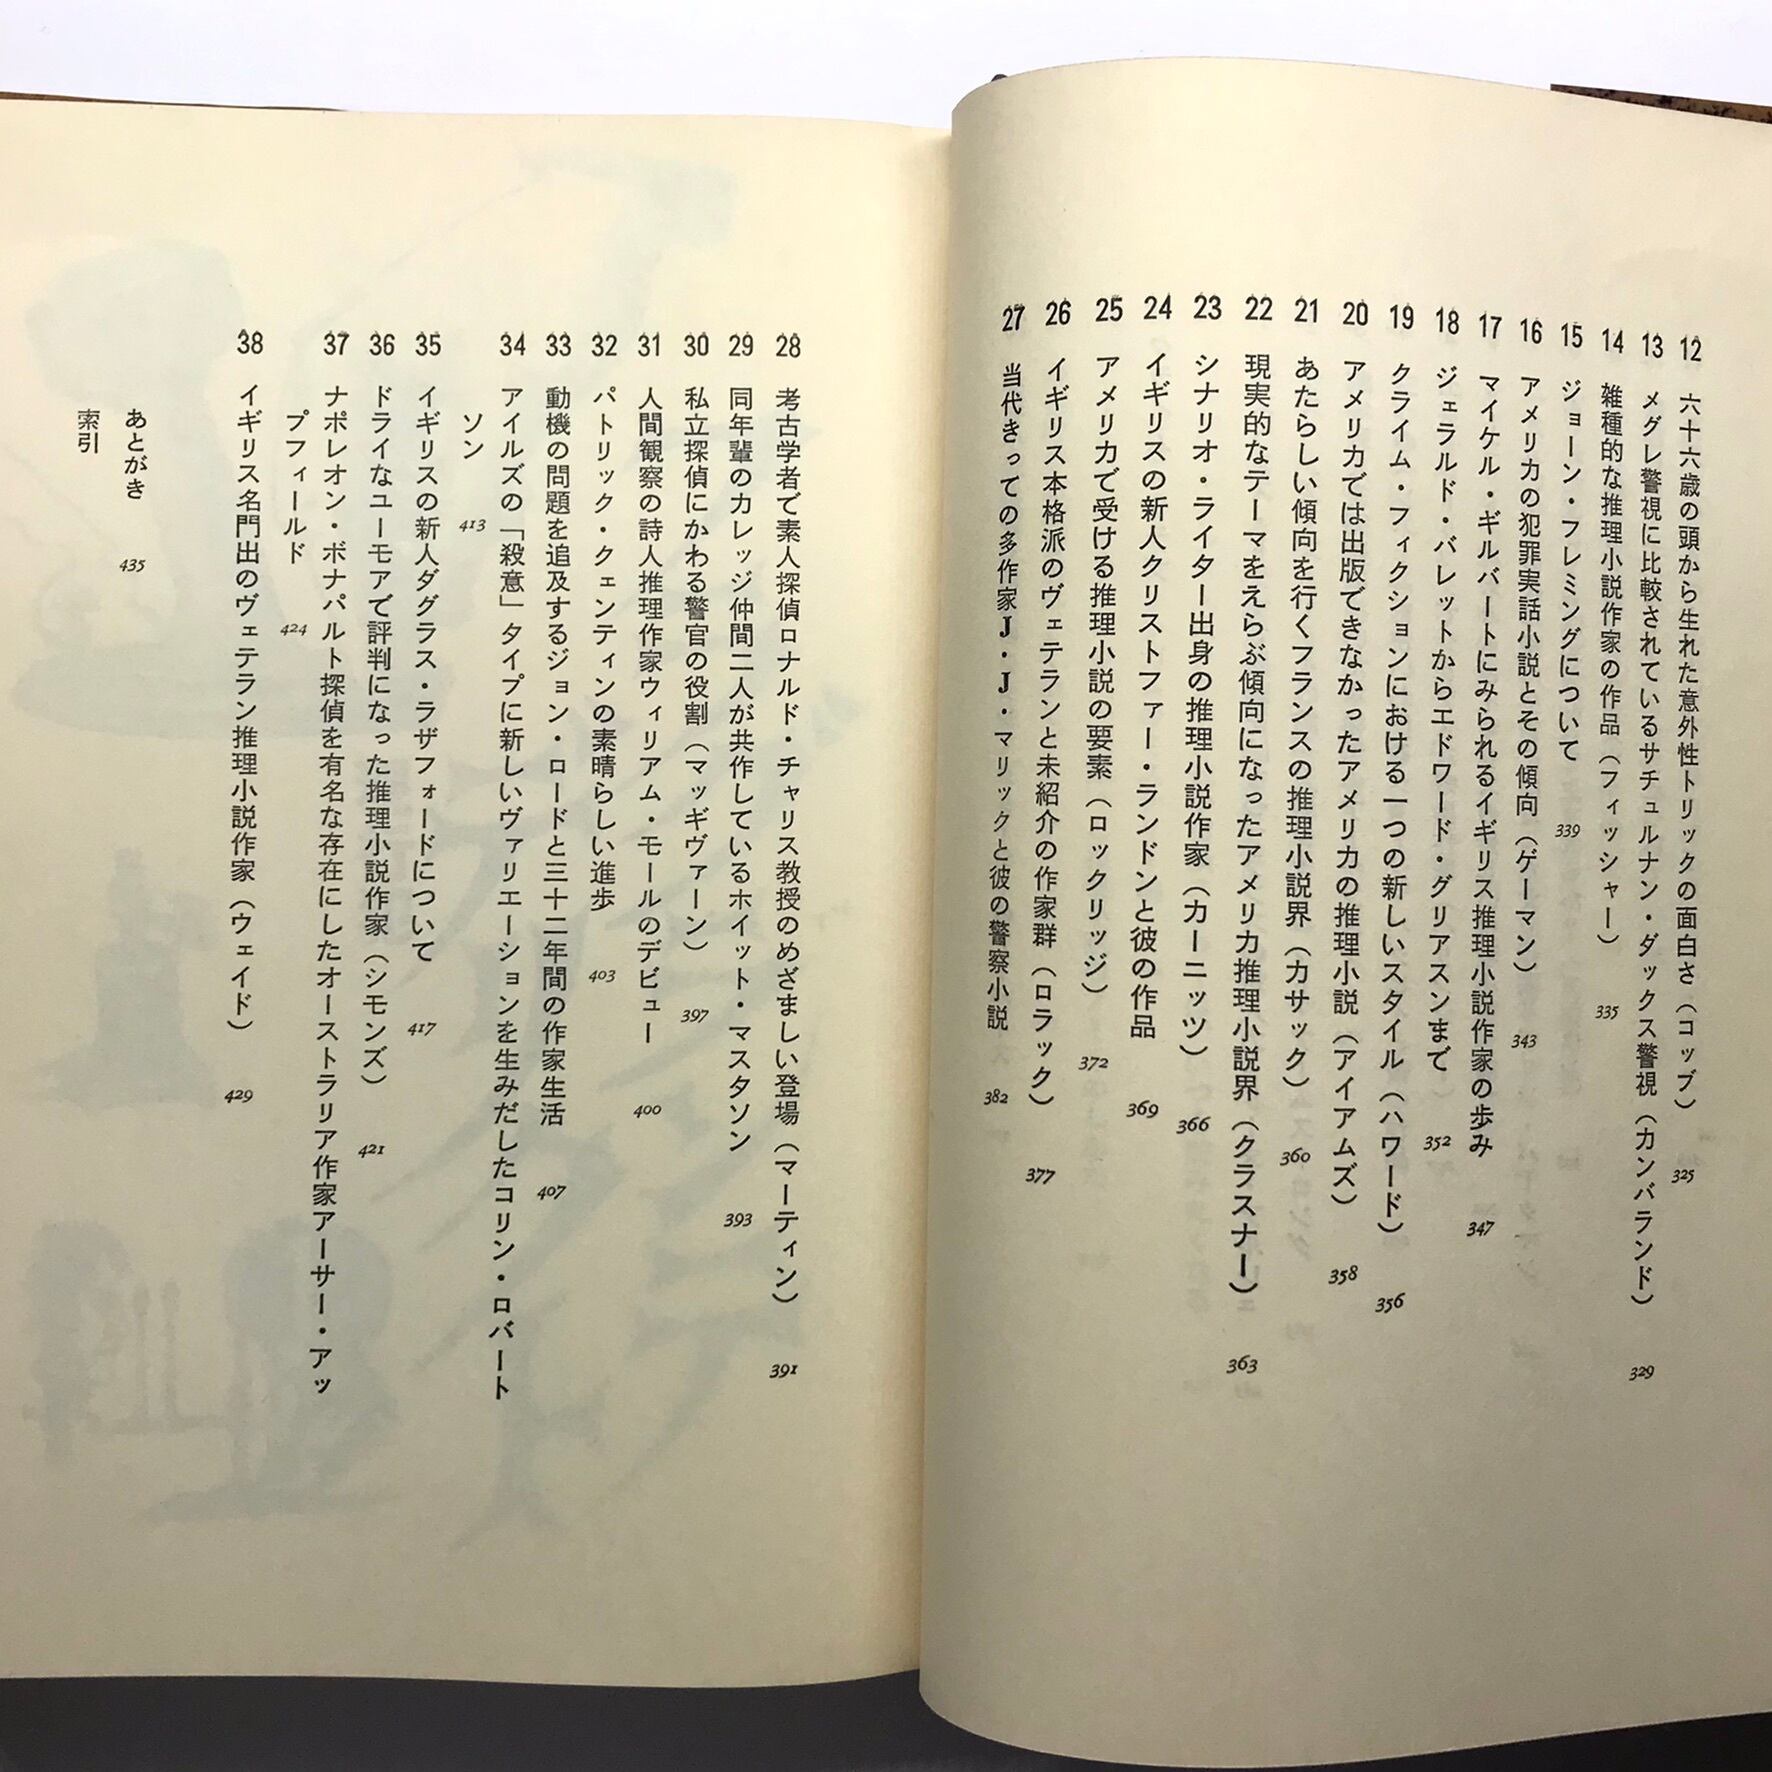 12 六十六歳の頭から生れた意外性トリックの面白さ（コッブ） 325
13 メグレ警視に比較されているサチュルナン・ダックス警視（カンバランド） 329
14 雑種的な推理小説作家の作品（フィッシャー） 335
15 ジョーン・フレミングについて 339
16 アメリカの犯罪実話小説とその傾向（ゲーマン） 343
17 マイケル・ギルバートにみられるイギリス推理小説作家の歩み 347
18 ジェラルド・バレットからエドワード・グリアスンまで 352
19 クライム・フィクションにおける一つの新しいスタイル（ハワード） 356
20 アメリカでは出版できなかったアメリカの推理小説（アイアムズ） 358
21 あたらしい傾向を行くフランスの推理小説界（カサック） 360
22 現実的なテーマをえらぶ傾向になったアメリカ推理小説界（クラスナー） 363
23 シナリオ・ライター出身の推理小説作家（カーニッツ） 366
24 イギリスの新人クリストファー・ランドンと彼の作品 369
25 アメリカで受ける推理小説の要素（ロックリッジ） 372
26 イギリス本格派のヴェテランと未紹介の作家群（ロラック） 377
27 当代きっての多作家J・J・マリックと彼の警察小説 382
28 考古学者で素人探偵ロナルド・チャリス教授のめざましい登場（マーティン） 391
29 同年輩のカレッジ仲間二人が共作しているホイット・マスタソン 393
30 私立探偵にかわる警官の役割（マッギヴァーン） 397
31 人間観察の詩人推理作家ウィリアム・モールのデビュー 400
32 パトリック・クェンティンの素晴らしい進歩 403
33 動機の問題を追及するジョン・ロードと三十二年間の作家生活 407
34 アイルズの「殺意」タイプに新しいヴァリエーションを生みだしたコリン・ロバート
ソン 413
35 イギリスの新人ダグラス・ラザフォードについて 417
36 ドライなユーモアで評判になった推理小説作家（シモンズ） 421
37 ナポレオン・ボナパルト探偵を有名な存在にしたオーストラリア作家アーサー・アッ
プフィールド 424
38 イギリス名門出のヴェテラン推理小説作家（ウェイド） 429
あとがき 435
索引